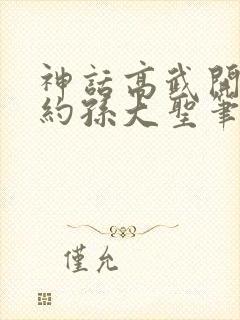 神話高武開
約孫大聖筆
僅允